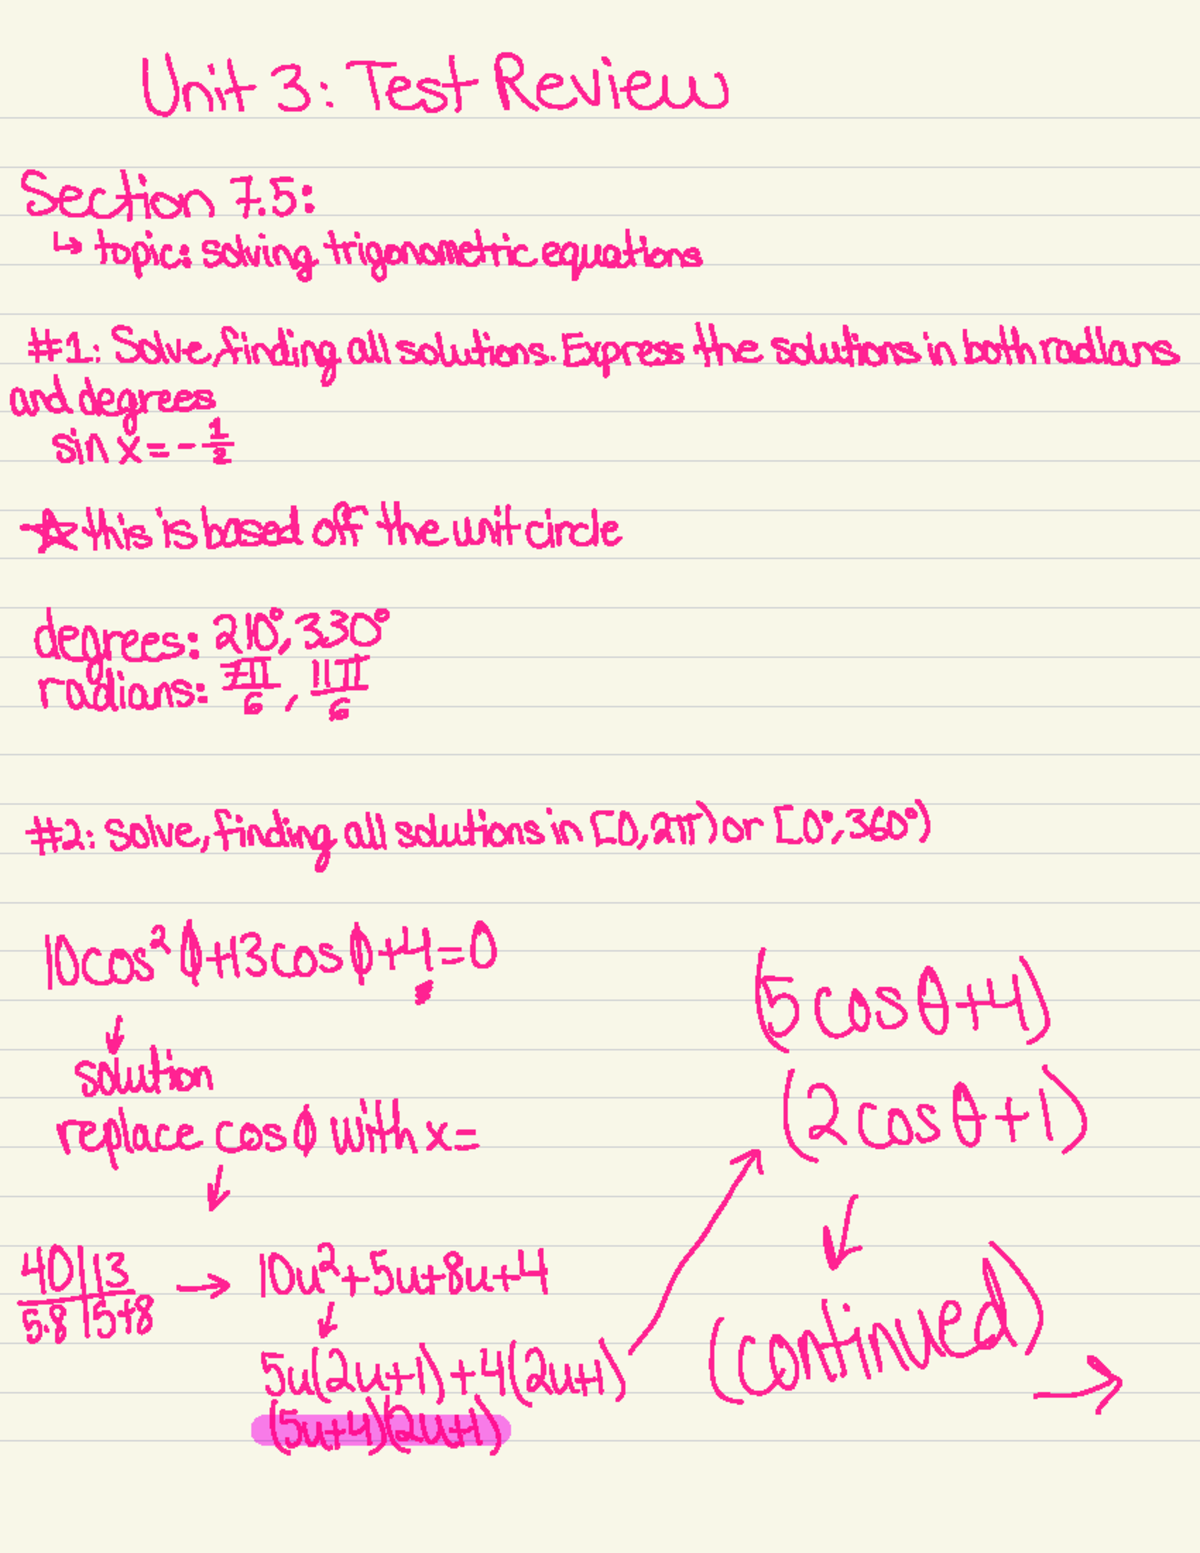 Unit 3: Test Review
Section 7.5:
↳ topic: solving trigonometric equations
#1: Solve, finding all solutions. Express the solutions in both radians
and degrees
sin x = - 1/2
☆ this is based off the unit circle
degrees: 210°, 330°
radians: 7π/6, 11π/6
#2: Solve, finding all solutions in [0, 2π) or [0°, 360°)
10cos² ϕ+13cos ϕ+4=0
↓
solution
replace cos ϕ with x=
↓
40|13
5·8|5+8
→ 10u²+5u+8u+4
↓
5u(2u+1)+4(2u+1)
(5u+4)(2u+1)
(5 cos θ+4)
(2 cos θ+1)
↓
(continued)
→